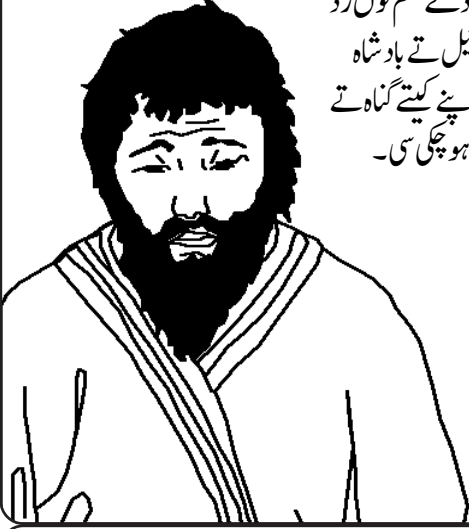 دے حکم نوں رد
تے بادشاہ
اپنے کیتے گناہ تے
ہو چکی سی۔